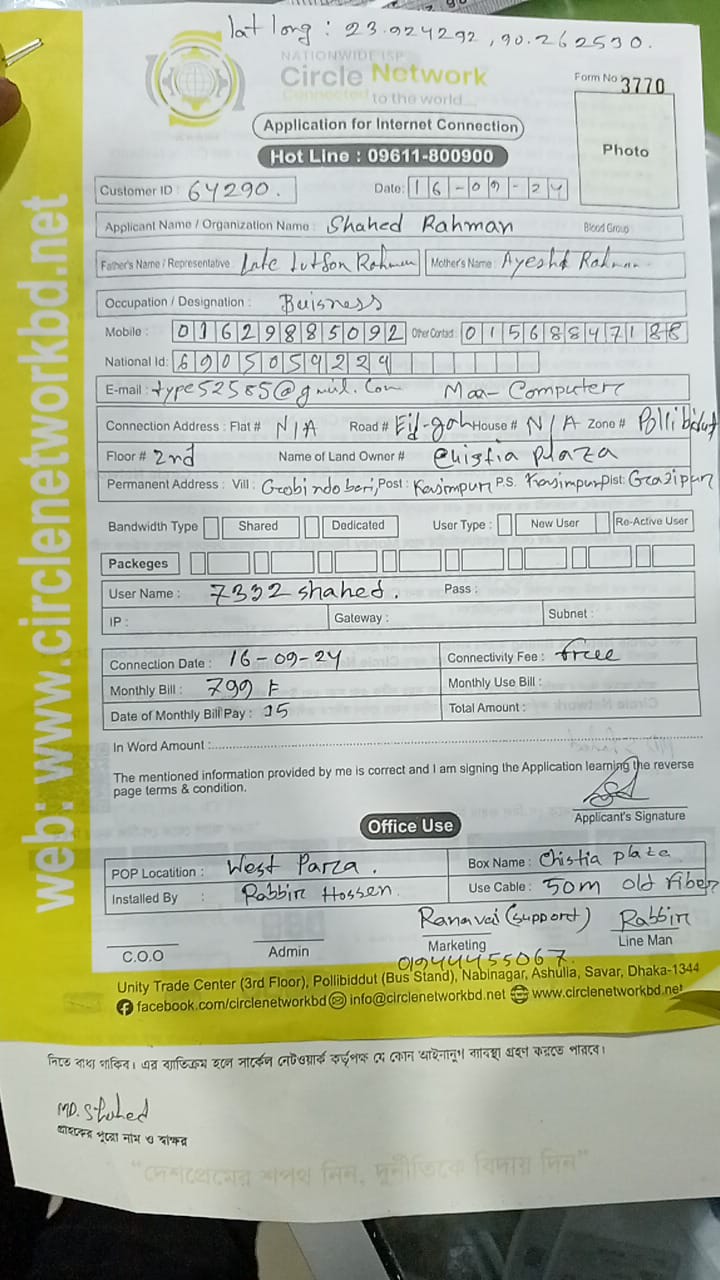 lat long : 23.924292, 90.262530.
NATIONWIDE ISP
Circle Network
Connected to the world...
Form No 3770
Application for Internet Connection
Hot Line : 09611-800900
Photo
Customer ID : 64290.
Date: 16-09-24
Applicant Name / Organization Name : Shahed Rahman Blood Group
Father's Name / Representative Late Lutfon Rahman Mother's Name : Ayesha Rahman
Occupation / Designation : Buisness
Mobile : 01629885092 Other Contact : 01568847188
National Id: 6905059224
E-mail : type52585@gmail.com Maa- Computer
Connection Address : Flat # N/A Road # Eid-gah House # N/A Zone # Pollibidut
Floor # 2nd Name of Land Owner # Chistia plaza
Permanent Address : Vill : Gobindobari, Post : Kasimpur P.S. Kasimpur Dist: Gazipur
Bandwidth Type Shared Dedicated User Type : New User Re-Active User
Packeges
User Name : 7332 shahed. Pass :
IP : Gateway : Subnet :
Connection Date : 16-09-24 Connectivity Fee : free
Monthly Bill : 799 ৳ Monthly Use Bill :
Date of Monthly Bill Pay : 15 Total Amount :
In Word Amount :
The mentioned information provided by me is correct and I am signing the Application learning the reverse
page terms & condition.
Applicant's Signature
Office Use
POP Locatition : West Parza. Box Name : Chistia plaza
Installed By : Rabbir Hossen. Use Cable : 50m old Fiber
Ranavai (support) Rabbir
C.O.O Admin Marketing Line Man
01944455067
Unity Trade Center (3rd Floor), Pollibiddut (Bus Stand), Nabinagar, Ashulia, Savar, Dhaka-1344
facebook.com/circlenetworkbd info@circlenetworkbd.net www.circlenetworkbd.net
web: www.circlenetworkbd.net
দিতে বাধ্য থাকিব। এর ব্যতিক্রম হলে সার্কেল নেটওয়ার্ক কর্তৃপক্ষ যে কোন আইনানুগ ব্যবস্থা গ্রহণ করতে পারবে।
MD. Shahed
গ্রাহকের পুরো নাম ও স্বাক্ষর
"দেশপ্রেমের শপথ নিন, দুর্নীতিকে বিদায় দিন"